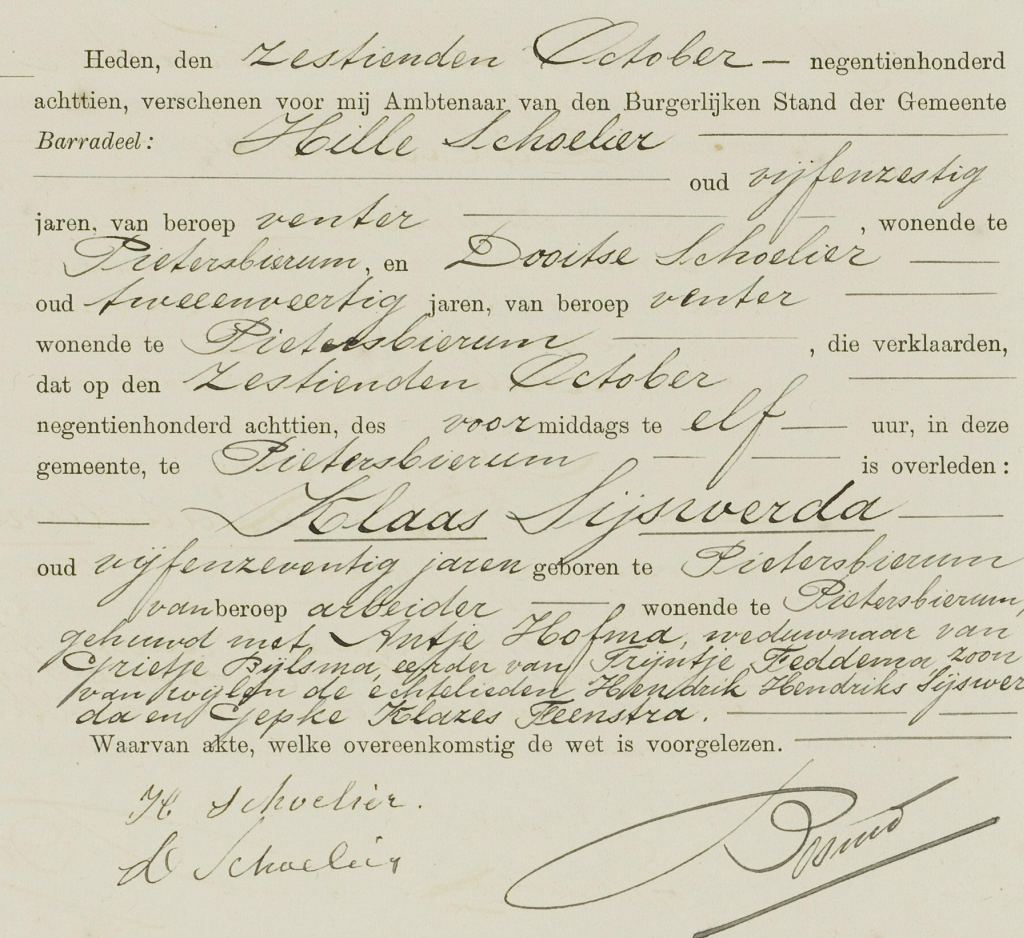 Heden, den zestienden October — negentienhonderd
achttien, verschenen voor mij Ambtenaar van den Burgerlijken Stand der Gemeente
Barradeel: Hille Schoelier
oud vijfenzestig
jaren, van beroep venter , wonende te
Pietersbierum, en Dooitse Schoelier
oud tweeenveertig jaren, van beroep venter
wonende te Pietersbierum , die verklaarden,
dat op den zestienden October
negentienhonderd achttien, des voormiddags te elf — uur, in deze
gemeente, te Pietersbierum is overleden:
Klaas Sijswerda
oud vijfenzeventig jaren geboren te Pietersbierum
van beroep arbeider wonende te Pietersbierum,
gehuwd met Antje Hofma, weduwnaar van
Grietje Bijlsma, eerder van Trijntje Feddema, zoon
van wijlen de echtelieden Hendrik Hendriks Sijswer
da en Gepke Klazes Feenstra.
Waarvan akte, welke overeenkomstig de wet is voorgelezen.
H Schoelier.
D Schoelier